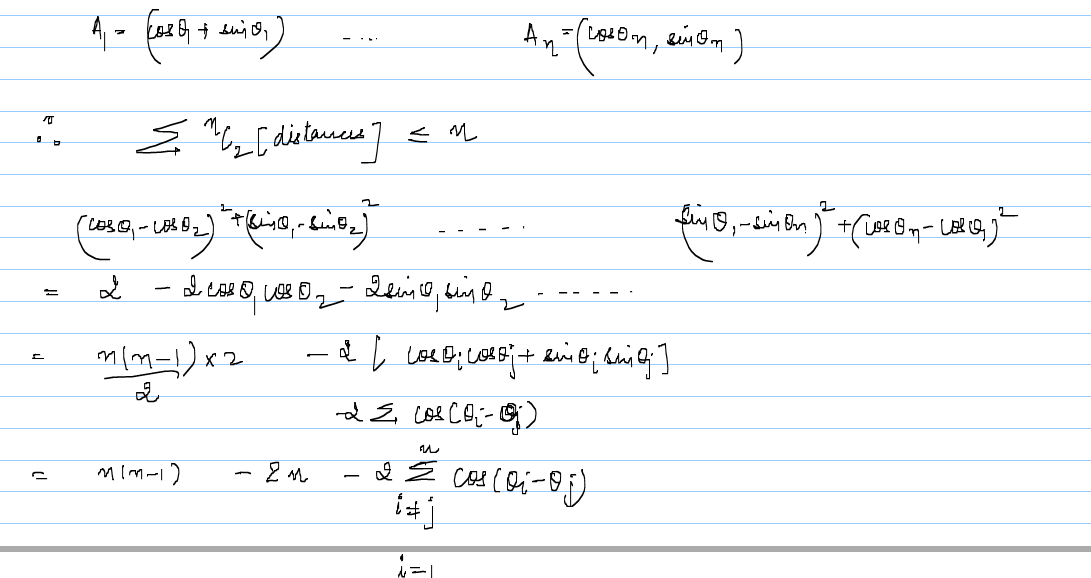 A₁ = (cosθ₁ + sinθ₁) .... Aₙ = (cosθₙ, sinθₙ)
∴ Σ ⁿC₂ [distances] ≤ n
(cosθ₁ - cosθ₂)² + (sinθ₁ - sinθ₂)² ----- (sinθ₁ - sinθₙ)² + (cosθₙ - cosθ₁)²
= 2 - 2cosθ₁cosθ₂ - 2sinθ₁sinθ₂ ------
= n(n-1)/2 × 2 - 2 [ cosθᵢcosθⱼ + sinθᵢsinθⱼ ]
-2 Σ cos(θᵢ - θⱼ)
= n(n-1) - 2n - 2 Σⁿ i≠j cos(θᵢ - θⱼ)
i=1